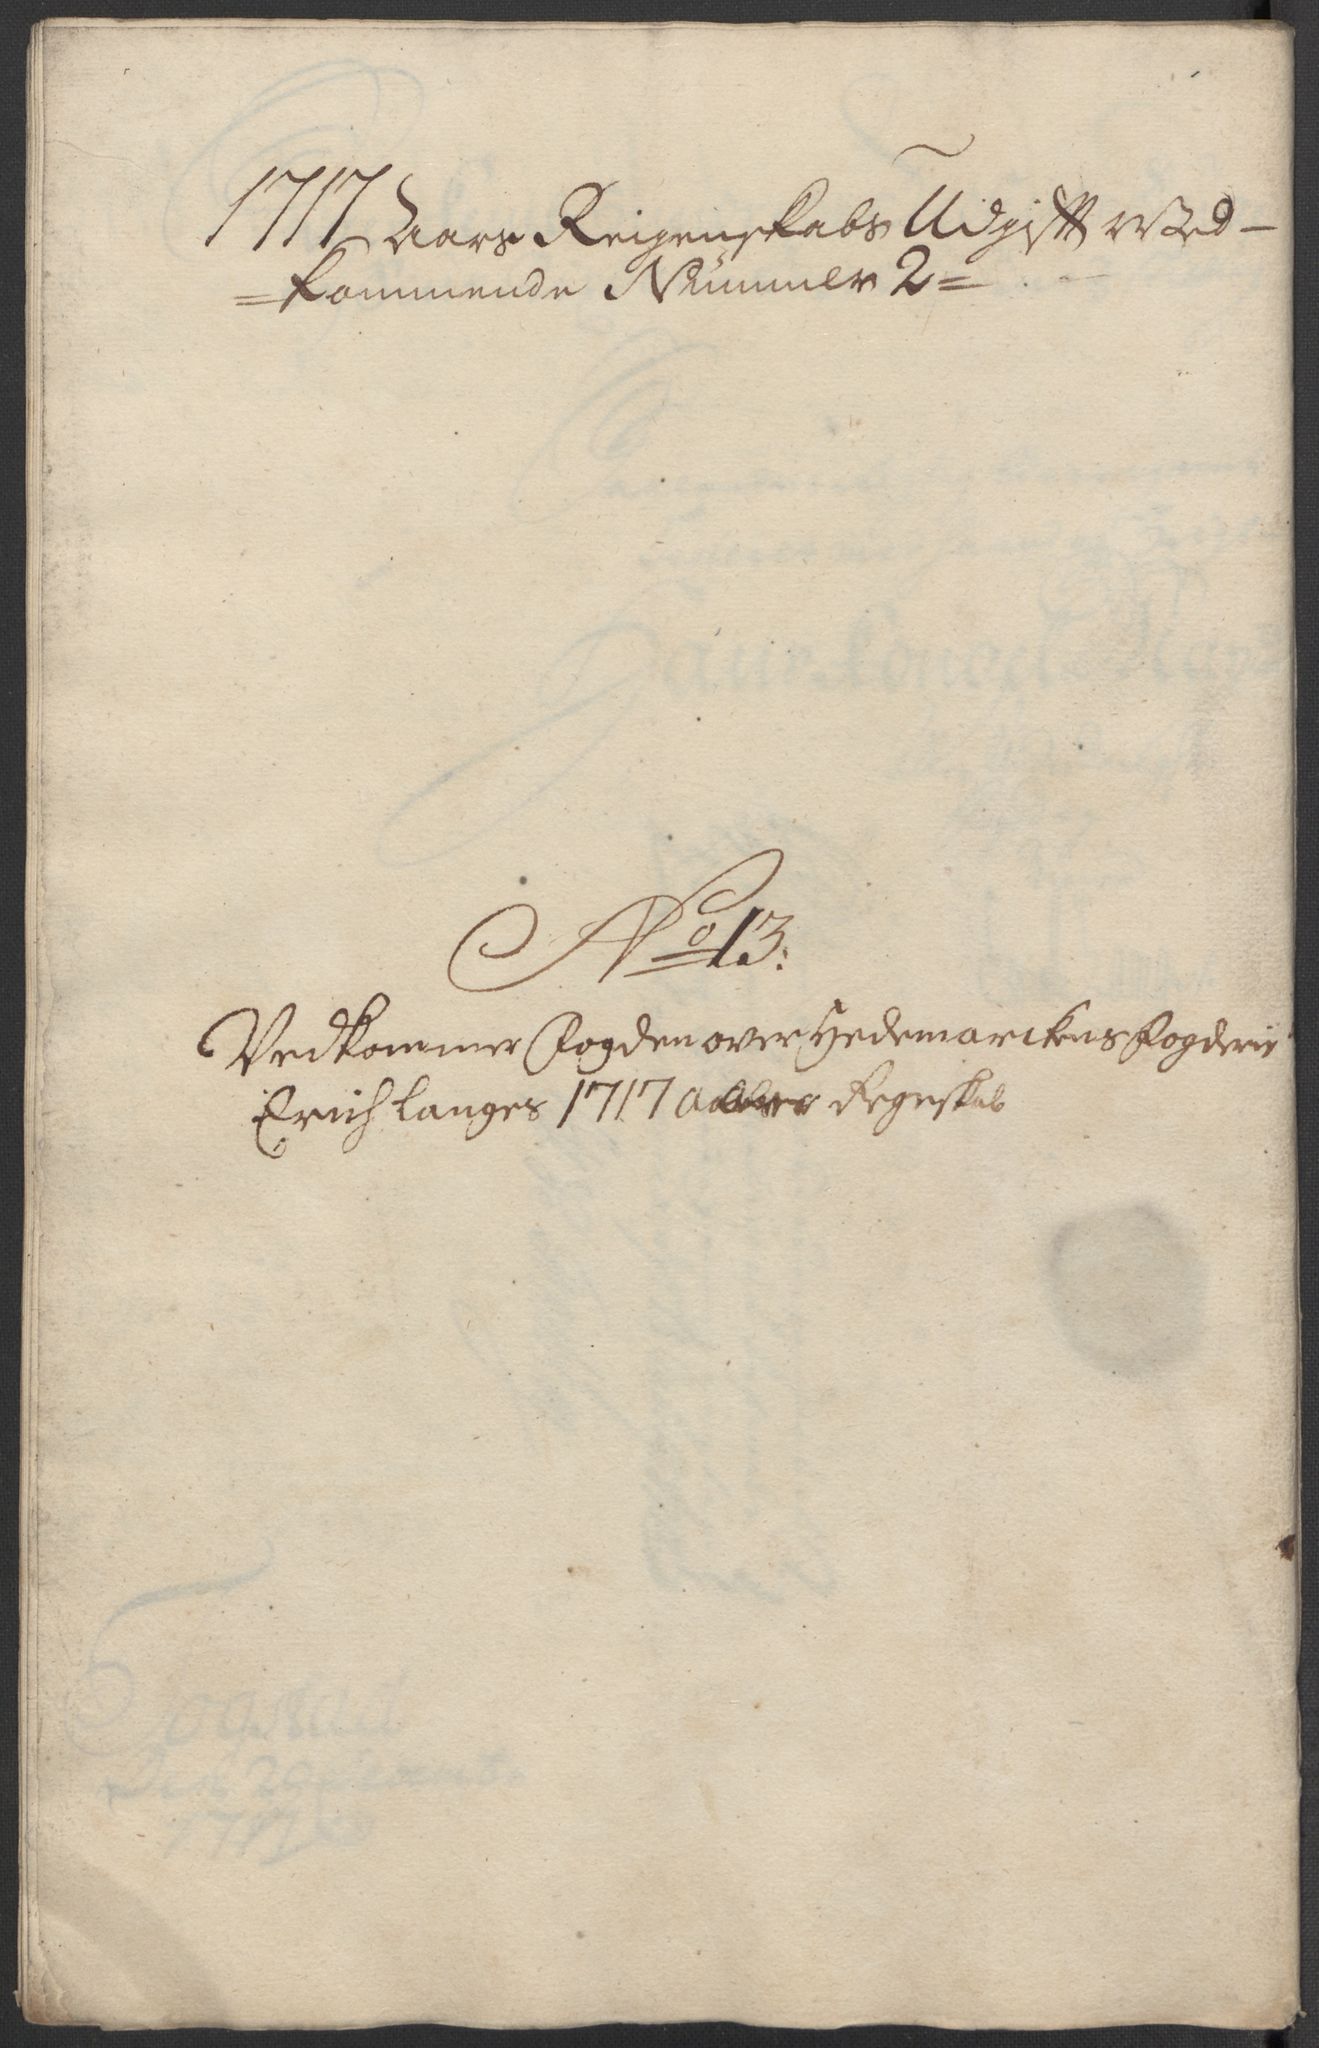 1717 Aars Reigenskabs Udgifft Ved-
=kommende Nümmer 2=
No 13:
Vedkommer Fogden over Hedemarckens Fogderie
Erich Langes 1717 Regnskab